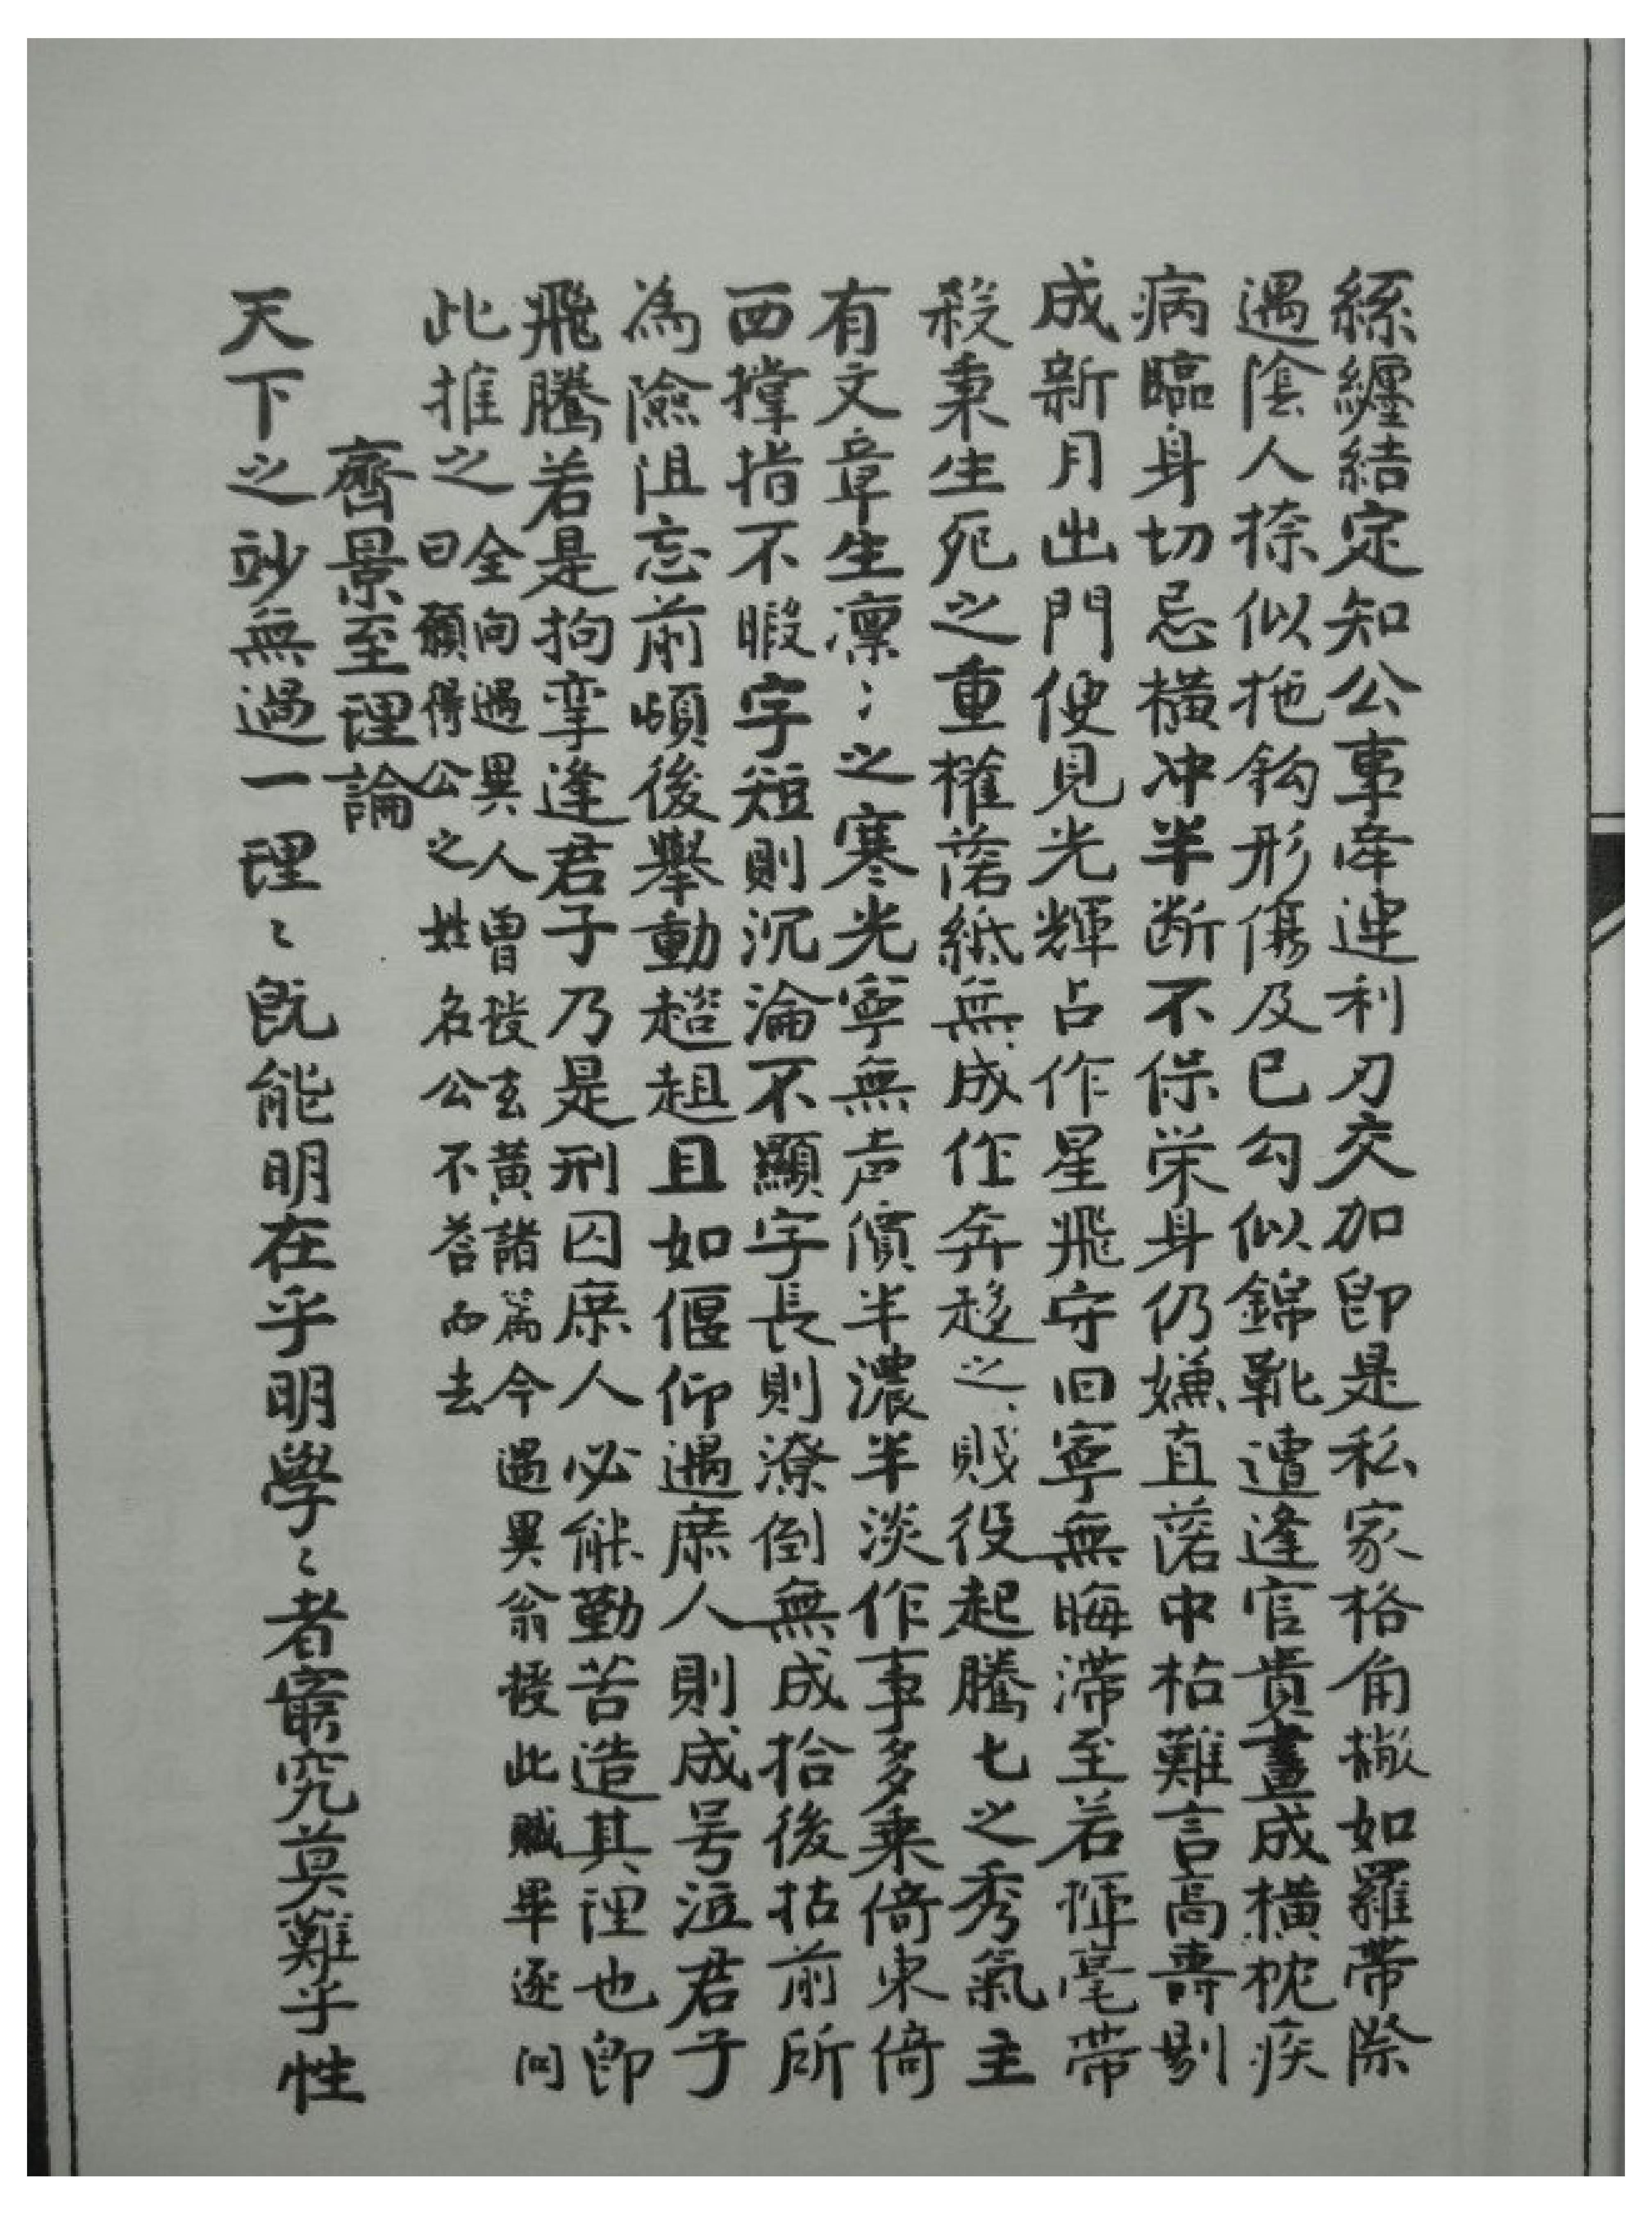 絲纏結定知公事牽連利刃交加即是私家格角撇如羅帶際
遇陰人捺似拖鈎形傷及己勾似錦靴遭逢官貴畫成橫枕疾
病臨身切忌橫冲半断不保荣身仍嫌直落中枯難言高壽剔
成新月出門便見光輝占作星飛守旧寧無晦滯至若揮毫帶
殺秉生死之重權落紙無成作奔趍之賤役起騰七之秀氣主
有文章生凛〻之寒光寧無声價半濃半淡作事多乘倚東倚
西撐指不暇字短則沉淪不顯字長則潦倒無成拾後拈前所
為險阻忘前頓後舉動趑趄且如偃仰遇庶人則成号泣君子
飛騰若是拘挛逢君子乃是刑囚庶人必能勤苦造其理也即
此推之
全向遇異人曾授玄黃諸篇今遇異翁授此賦畢逐问
曰願得公之姓名公不答而去
齊景至理論
天下之玅無過一理〻既能明在乎明學〻者窮究莫難乎性